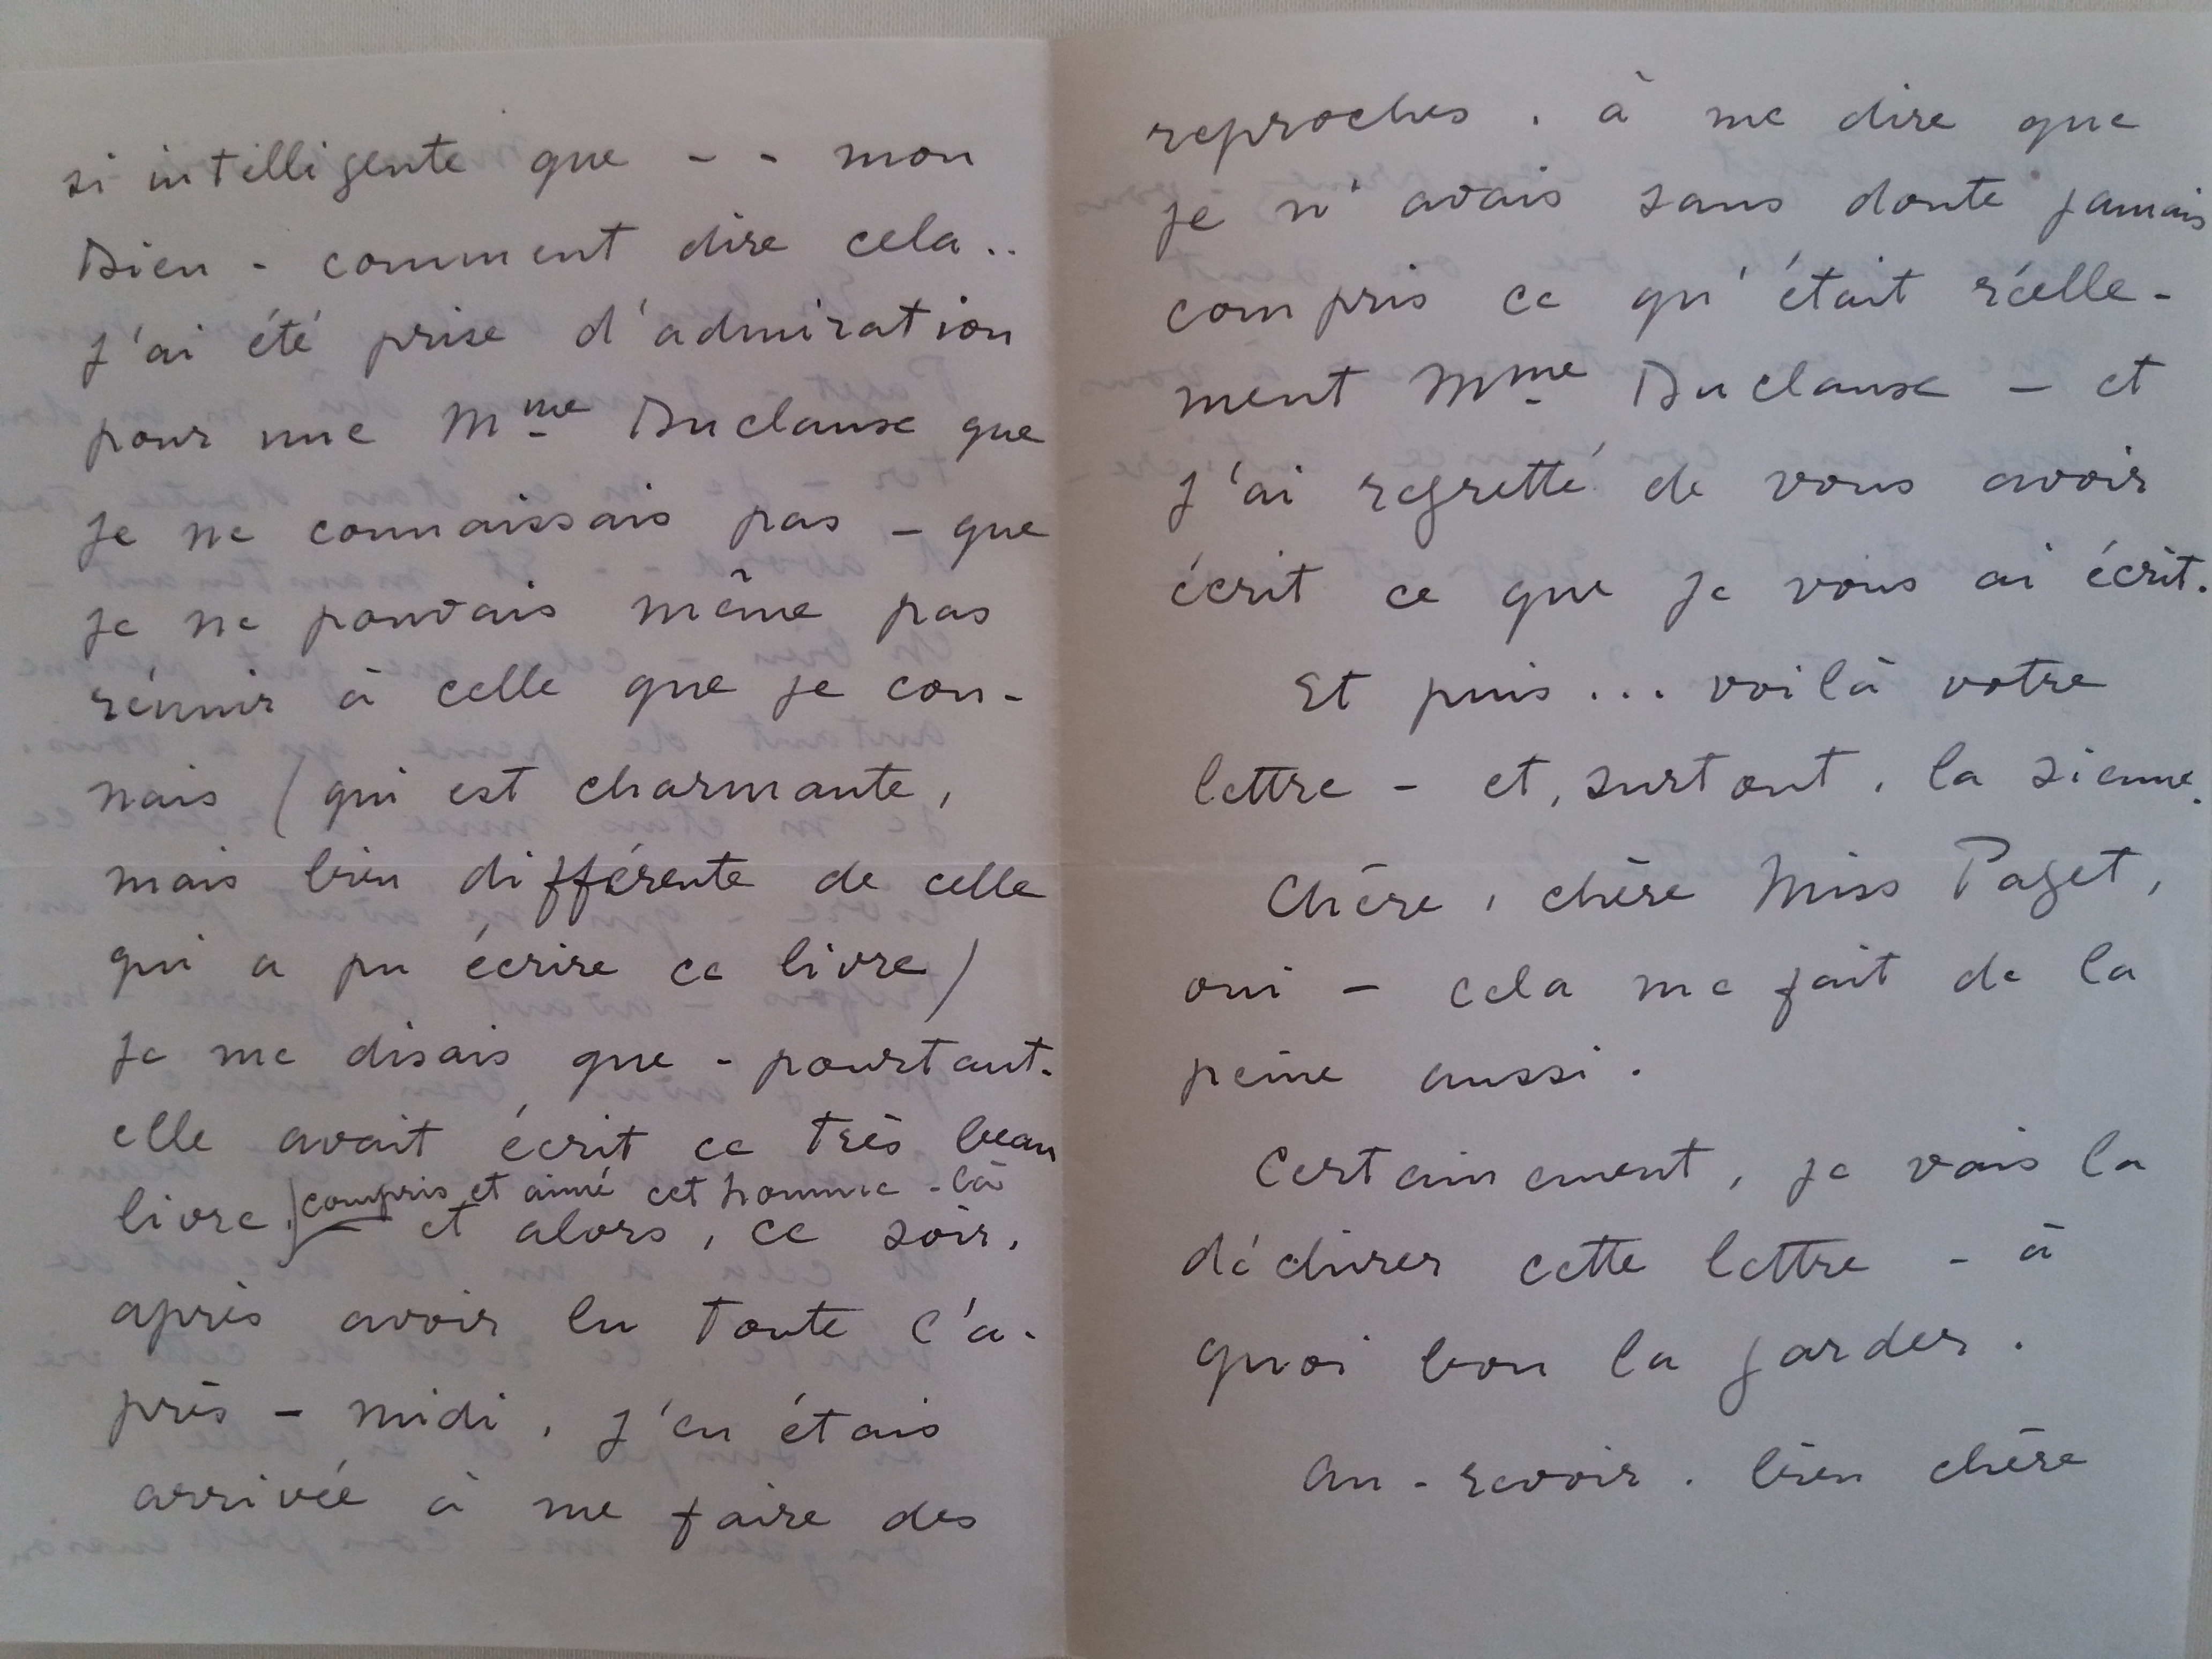 si intelligente que - - mon
Dieu - comment dire cela..
j'ai été prise d'admiration
pour une Mme Duclaux que
je ne connaissais pas - que
je ne pouvais même pas
réunir à celle que je con-
nais (qui est charmante,
mais bien différente de celle
qui a pu écrire ce livre)
je me disais que - pourtant -
elle avait écrit ce très beau
compris et aimé cet homme-là
livre, et alors, ce soir,
après avoir lu toute l'a-
près-midi, j'en étais
arrivée à me faire des
reproches, à me dire que
je n'avais sans doute jamais
compris ce qu'était réelle-
ment Mme Duclaux - et
j'ai regretté de vous avoir
écrit ce que je vous ai écrit.
Et puis... voilà votre
lettre - et, surtout, la sienne.
Chère, chère Miss Paget,
oui - cela me fait de la
peine aussi.
Certainement, je vais la
déchirer cette lettre - à
quoi bon la garder.
Au-revoir, bien chère